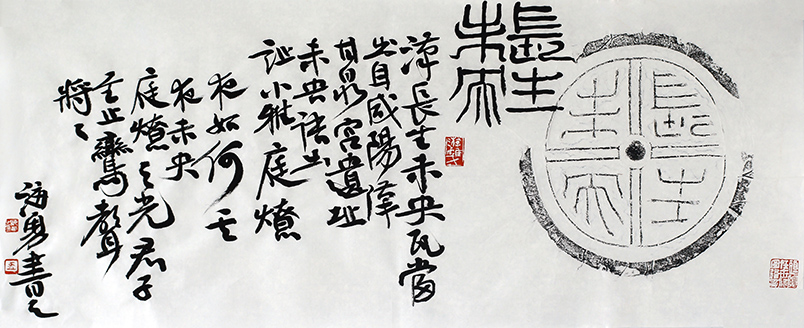 長生
未央
長生
未央
漢長生未央瓦當
出自咸陽漢
甘泉宮遺址
未央語出
詩小雅庭燎
夜如何其
夜未央
庭燎之光君子
至止鸞聲
將々
勇書之